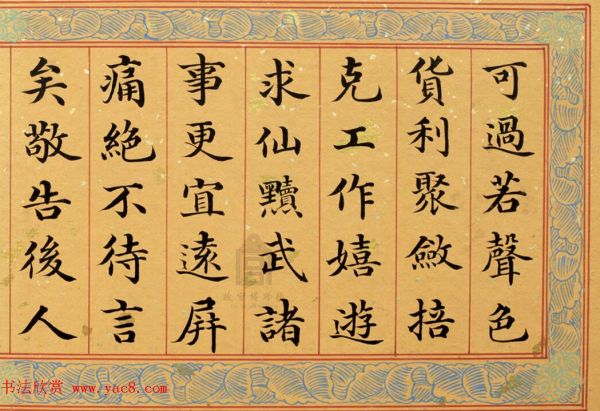 可過若聲色
貨利聚斂掊
克工作嬉遊
求仙黷武諸
事更宜遠屏
痛絕不待言
矣敬告後人
故宮博物院
书法欣赏 www.yac8.com